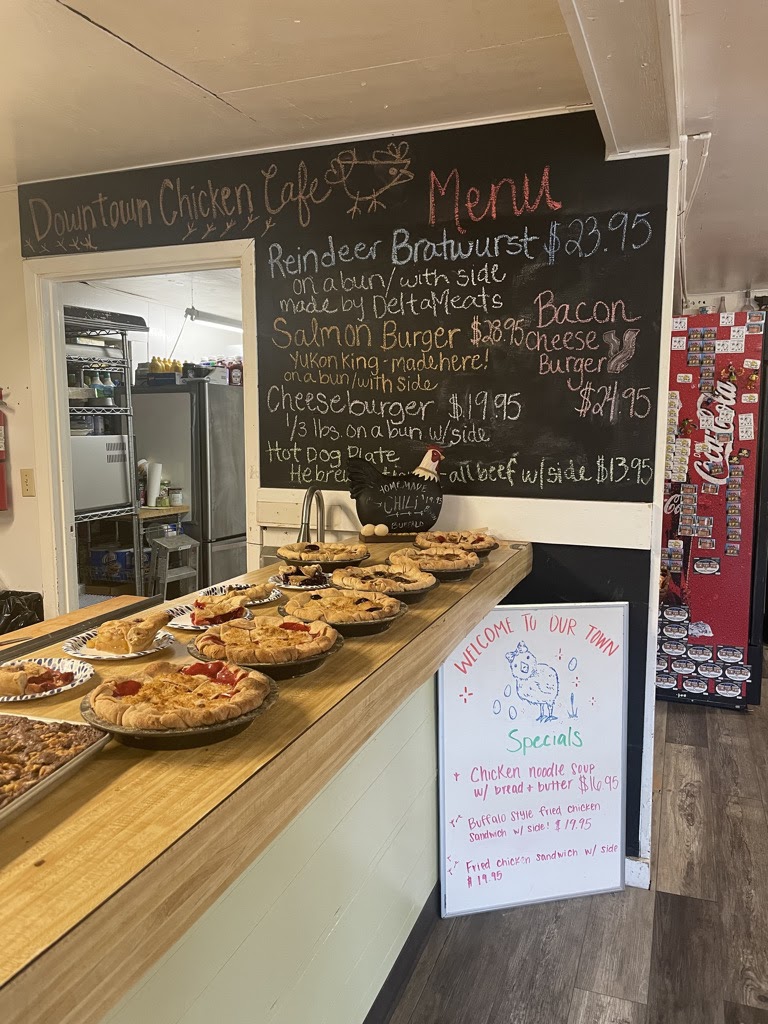 Downtown Chicken Cafe
Menu
Reindeer Bratwurst $23.95
on a bun/with side
made by DeltaMeats
Salmon Burger $28.95
Yukon King - made here!
on a bun/with side
Cheeseburger $19.95
1/3 lbs. on a bun w/side
Hot Dog Plate
Hebrew all beef w/side $13.95
Bacon
Cheese
Burger
$24.95
HOMEMADE
CHILI
BUFFALO
WELCOME TO OUR TOWN
Specials
Chicken noodle soup
w/ bread + butter $16.95
Buffalo Style fried chicken
sandwich w/ side! $19.95
Fried chicken sandwich w/ side
$19.95
Coca-Cola